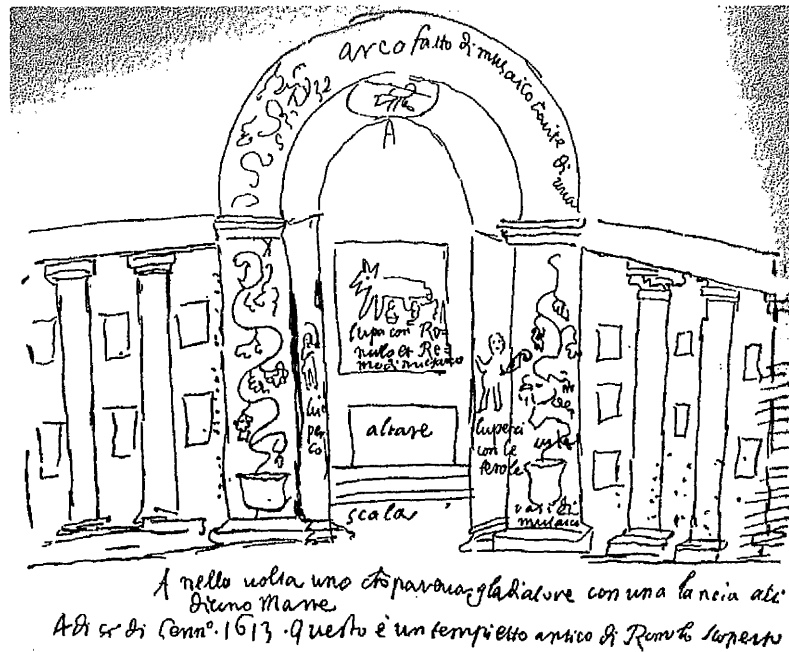 arco fatto di musaico tarsie di uva
A
lupa con Ro-
mulo et Re-
mo di musaico
lu
per
co
altare
luperci
con le
ferole
scala
vasi di
musaico
A nella volta uno che pareva gladiatore con una lancia altri
dicono Marte
A di di Genn.º 1613. Questo è un tempietto antico di Romolo scoperto